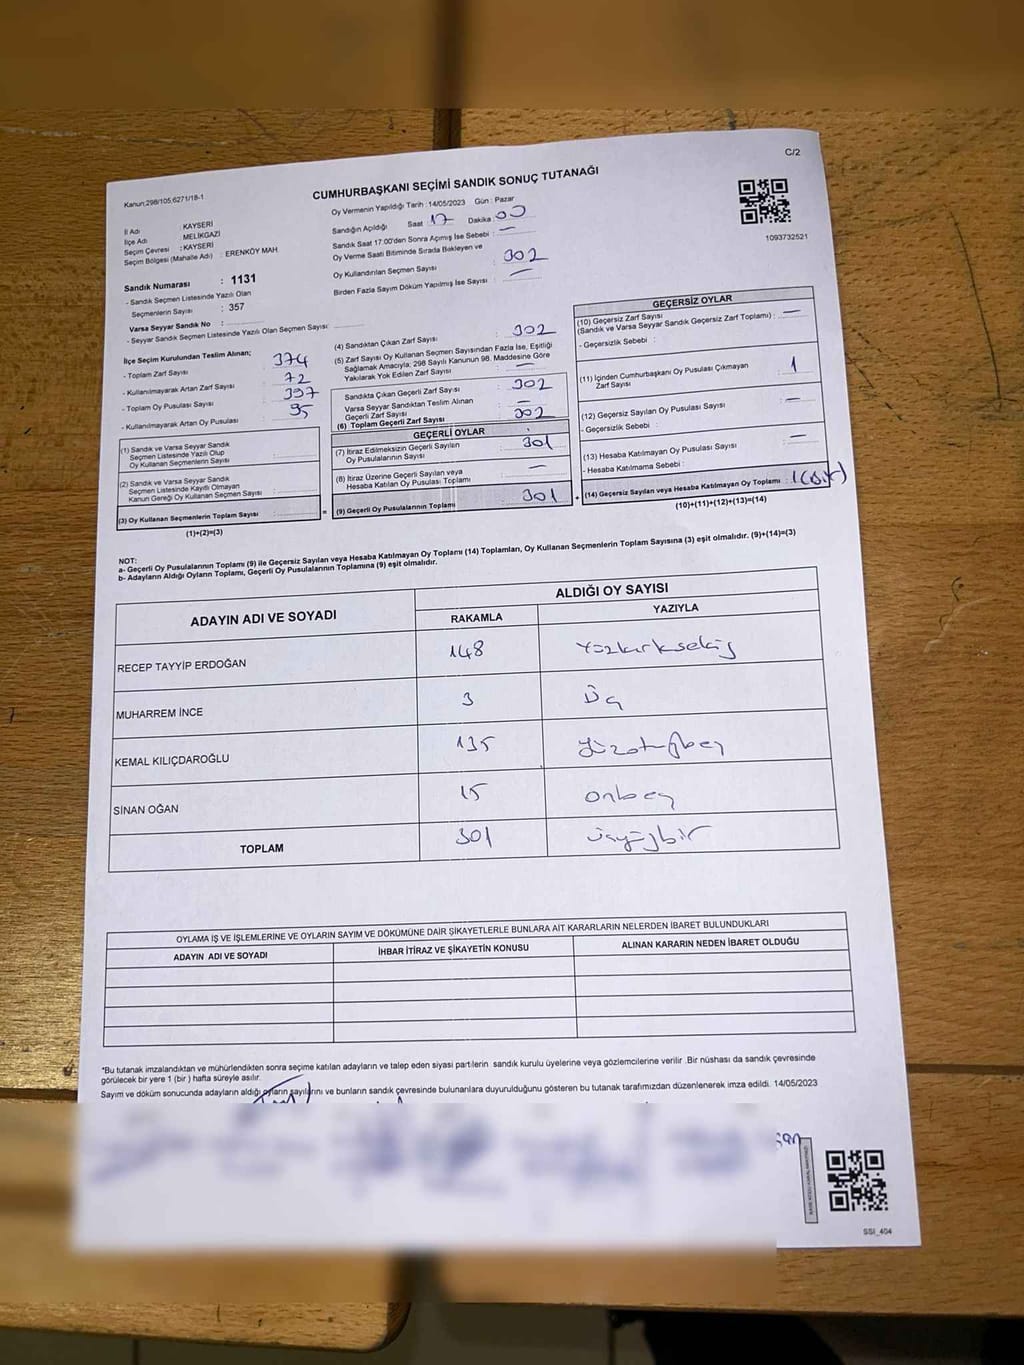 C/2
Kanun;298/105,6271/18-1
CUMHURBAŞKANI SEÇİMİ SANDIK SONUÇ TUTANAĞI
1093732521
İl Adı : KAYSERİ
İlçe Adı MELİKGAZİ
Seçim Çevresi : KAYSERİ
Seçim Bölgesi (Mahalle Adı) : ERENKÖY MAH.
Sandık Numarası : 1131
- Sandık Seçmen Listesinde Yazılı Olan
Seçmenlerin Sayısı : 357
Varsa Seyyar Sandık No :
- Seyyar Sandık Seçmen Listesinde Yazılı Olan Seçmen Sayısı:
Oy Vermenin Yapıldığı Tarih :14/05/2023 Gün : Pazar
Sandığın Açıldığı Saat 17 Dakika : 00
Sandık Saat 17:00'den Sonra Açılmış İse Sebebi : —
Oy Verme Saati Bitiminde Sırada Bekleyen ve
Oy Kullandırılan Seçmen Sayısı : 302
Birden Fazla Sayım Döküm Yapılmış İse Sayısı : —
İlçe Seçim Kurulundan Teslim Alınan;
- Toplam Zarf Sayısı : 374
- Kullanılmayarak Artan Zarf Sayısı : 72
- Toplam Oy Pusulası Sayısı : 397
- Kullanılmayarak Artan Oy Pusulası : 95
(1) Sandık ve Varsa Seyyar Sandık
Seçmen Listesinde Yazılı Olup
Oy Kullanan Seçmenlerin Sayısı :
(2) Sandık ve Varsa Seyyar Sandık
Seçmen Listesinde Kayıtlı Olmayan
Kanun Gereği Oy Kullanan Seçmen Sayısı :
(3) Oy Kullanan Seçmenlerin Toplam Sayısı :
(1)+(2)=(3)
(4) Sandıktan Çıkan Zarf Sayısı : 302
(5) Zarf Sayısı Oy Kullanan Seçmen Sayısından Fazla İse, Eşitliği
Sağlamak Amacıyla; 298 Sayılı Kanunun 98. Maddesine Göre
Yakılarak Yok Edilen Zarf Sayısı : —
Sandıkta Çıkan Geçerli Zarf Sayısı : 302
Varsa Seyyar Sandıktan Teslim Alınan
Geçerli Zarf Sayısı : —
(6) Toplam Geçerli Zarf Sayısı : 302
GEÇERLİ OYLAR
(7) İtiraz Edilmeksizin Geçerli Sayılan
Oy Pusulalarının Sayısı : 301
(8) İtiraz Üzerine Geçerli Sayılan veya
Hesaba Katılan Oy Pusulası Toplamı : —
(9) Geçerli Oy Pusulalarının Toplamı : 301
GEÇERSİZ OYLAR
(10) Geçersiz Zarf Sayısı
(Sandık ve Varsa Seyyar Sandık Geçersiz Zarf Toplamı) : —
- Geçersizlik Sebebi :
(11) İçinden Cumhurbaşkanı Oy Pusulası Çıkmayan
Zarf Sayısı : 1
(12) Geçersiz Sayılan Oy Pusulası Sayısı : —
- Geçersizlik Sebebi :
(13) Hesaba Katılmayan Oy Pusulası Sayısı : —
- Hesaba Katılmama Sebebi :
(14) Geçersiz Sayılan veya Hesaba Katılmayan Oy Toplamı : 1(bir)
(10)+(11)+(12)+(13)=(14)
NOT:
a- Geçerli Oy Pusulalarının Toplamı (9) ile Geçersiz Sayılan veya Hesaba Katılmayan Oy Toplamı (14) Toplamları, Oy Kullanan Seçmenlerin Toplam Sayısına (3) eşit olmalıdır. (9)+(14)=(3)
b- Adayların Aldığı Oyların Toplamı, Geçerli Oy Pusulalarının Toplamına (9) eşit olmalıdır.
ADAYIN ADI VE SOYADI ALDIĞI OY SAYISI
RAKAMLA YAZIYLA
RECEP TAYYİP ERDOĞAN 148 Yüzkırksekiz
MUHARREM İNCE 3 Üç
KEMAL KILIÇDAROĞLU 135 Yüzotuzbeş
SİNAN OĞAN 15 Onbeş
TOPLAM 301 üçyüzbir
OYLAMA İŞ VE İŞLEMLERİNE VE OYLARIN SAYIM VE DÖKÜMÜNE DAİR ŞİKAYETLERLE BUNLARA AİT KARARLARIN NELERDEN İBARET BULUNDUKLARI
ADAYIN ADI VE SOYADI İHBAR İTİRAZ VE ŞİKAYETİN KONUSU ALINAN KARARIN NEDEN İBARET OLDUĞU
*Bu tutanak imzalandıktan ve mühürlendikten sonra seçime katılan adayların ve talep eden siyasi partilerin sandık kurulu üyelerine veya gözlemcilerine verilir .Bir nüshası da sandık çevresinde
görülecek bir yere 1 (bir ) hafta süreyle asılır.
Sayım ve döküm sonucunda adayların aldığı oyların sayılarını ve bunların sandık çevresinde bulunanlara duyurulduğunu gösteren bu tutanak tarafımızdan düzenlenerek imza edildi. 14/05/2023
SSİ_404